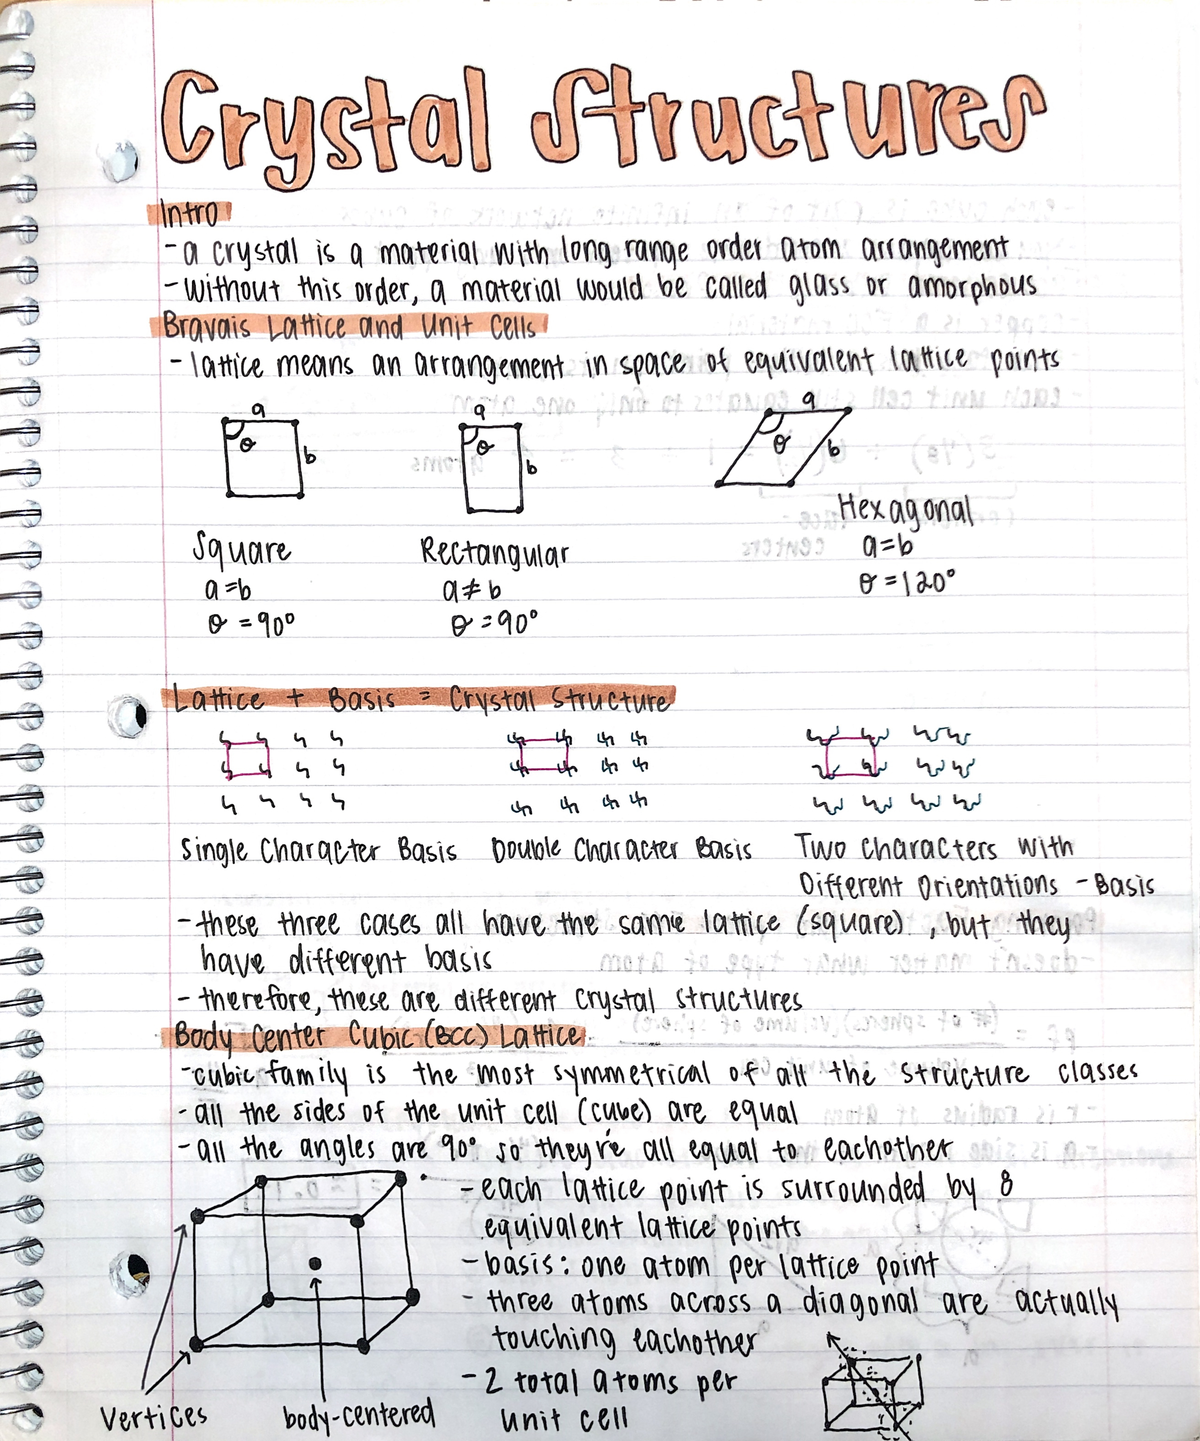 Crystal Structures
Intro
- a crystal is a material with long range order atom arrangement
- without this order, a material would be called glass or amorphous
Bravais Lattice and Unit Cells
- lattice means an arrangement in space of equivalent lattice points
a a a
θ b θ b θ b
Hexagonal
Square Rectangular a=b
a=b a≠b θ=120°
θ=90° θ=90°
Lattice + Basis = Crystal Structure
Single Character Basis Double Character Basis Two Characters with
Different Orientations - Basis
- these three cases all have the same lattice (square), but they
have different basis
- therefore, these are different crystal structures
Body Center Cubic (BCC) Lattice
- cubic family is the most symmetrical of all the structure classes
- all the sides of the unit cell (cube) are equal
- all the angles are 90° so they're all equal to eachother
- each lattice point is surrounded by 8
equivalent lattice points
- basis: one atom per lattice point
- three atoms across a diagonal are actually
touching eachother
- 2 total atoms per
unit cell
vertices body-centered